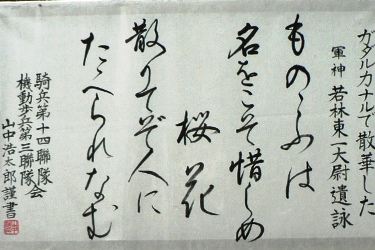 ガダルカナルで散華した
軍神 若林東一大尉遺詠
ものゝふは
名をこそ惜しめ
桜花
散りてぞ人に
たゝへられなむ
騎兵第十四聯隊
機動歩兵第三聯隊会
山中浩太郎謹書